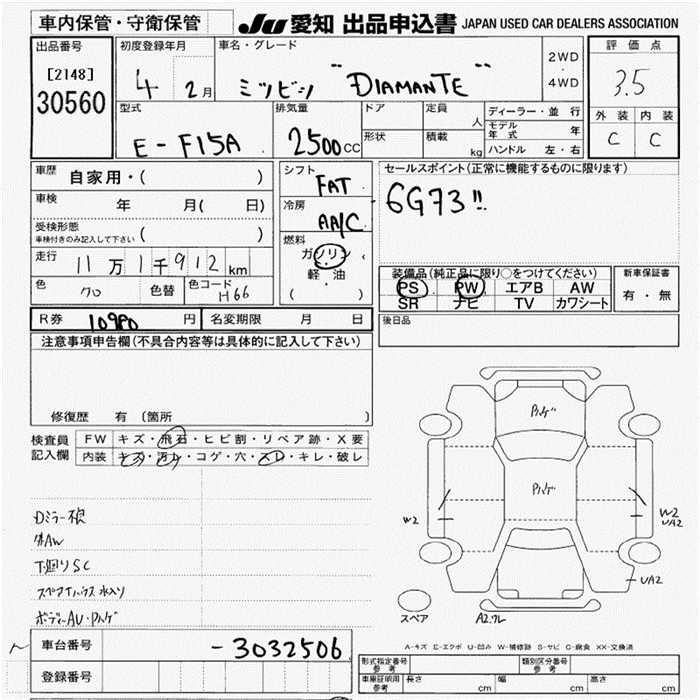 車内保管・守衛保管
JU 愛知 出品申込書 JAPAN USED CAR DEALERS ASSOCIATION
出品番号
[2148]
30560
初度登録年月
4 2月
車名・グレード
ミツビシ "DIAMANTE"
2WD
・
4WD
評価点
3.5
外装 内装
C C
型式
E-F15A
排気量
2500cc
ドア
形状
定員 人
積載 kg
ディーラー・並行
モデル年式 年
ハンドル 左・右
車歴 自家用・( )
車検 年 月( 日)
受検形態
車検付きのみ記入して下さい ( )
走行 11万1千912km
色 クロ 色替 色コード H66
シフト
FAT
冷房
AA/C
燃料
ガソリン
軽・油
( )
セールスポイント(正常に機能するものに限ります)
6G73!!
装備品(純正品に限り○をつけてください)
PS PW エアB AW
SR ナビ TV カワシート
新車保証書
有・無
後日品
R券 10980 円 名変期限 月 日
注意事項申告欄(不具合内容等は具体的に記入して下さい)
修復歴 有 〔箇所
検査員
記入欄
FW キズ・飛石・ヒビ割・リペア跡・X要
内装 キズ・汚れ・コゲ・穴・スレ・キレ・破レ
Dミラー破
社AW
下廻りSC
ボディーAU・ハゲ
ハゲ
ハゲ
W2
W2
UA2
UA2
スペア
A2.ワレ
A-キズ E-エクボ U-凹み W-補修跡 S-サビ C-腐食 XX-交換済
車台番号 -3032506
登録番号
形式指定番号
参考
類別区分番号
参考
車庫証明用
参考
長さ cm 幅 cm 高さ cm